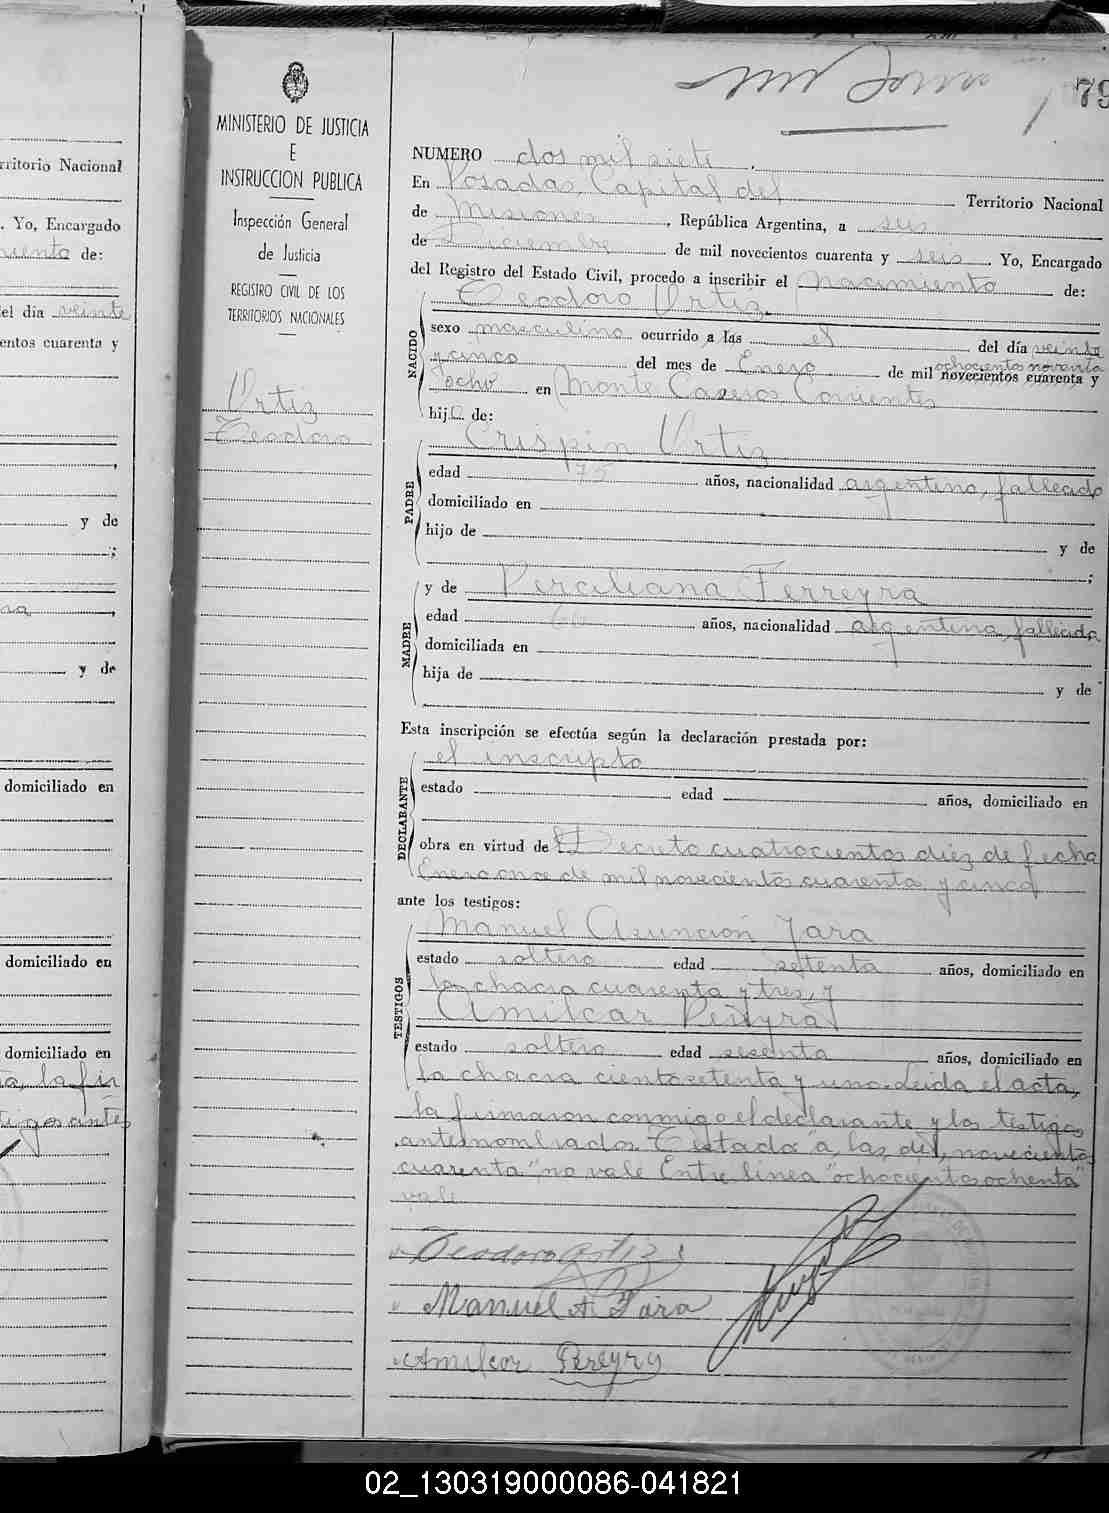 79
MINISTERIO DE JUSTICIA
E
INSTRUCCION PUBLICA
Inspección General
de Justicia
REGISTRO CIVIL DE LOS
TERRITORIOS NACIONALES
Ortiz
Teodoro
NUMERO dos mil siete
En Posadas, Capital del Territorio Nacional
de Misiones, República Argentina, a seis
de Diciembre de mil novecientos cuarenta y seis. Yo, Encargado
del Registro del Estado Civil, procedo a inscribir el nacimiento de:
NACIDO
Teodoro Ortiz
sexo masculino ocurrido a las el del día veinte
y cinco del mes de Enero de mil novecientos cuarenta y
ochocientos noventa
ocho en Monte Caseros Corrientes
hijo de:
PADRE
Crispin Ortiz
edad 75 años, nacionalidad argentino, fallecido
domiciliado en
hijo de y de
;
MADRE
y de Perciliana Ferreyra
edad 60 años, nacionalidad argentina, fallecida
domiciliada en
hija de y de
Esta inscripción se efectúa según la declaración prestada por:
DECLARANTE
el inscripto
estado edad años, domiciliado en
obra en virtud del Decreto cuatrocientos diez de fecha
Enero once de mil novecientos cuarenta y cinco
ante los testigos:
TESTIGOS
Manuel Asunción Jara
estado soltero edad setenta años, domiciliado en
la chacra cuarenta y tres, y
Amilcar Pereyra
estado soltero edad sesenta años, domiciliado en
la chacra ciento setenta y uno. Leida el acta,
la firmaron conmigo el declarante y los testigos
antes nombrados. Testado "a, las, del, novecientos
cuarenta", no vale. Entre linea "ochocientos ochenta"
vale
Teodoro Ortiz
Manuel A. Jara
Amilcar Pereyra
rritorio Nacional
. Yo, Encargado
miento de:
el día veinte
entos cuarenta y
,
y de
;
,
y de
domiciliado en
domiciliado en
domiciliado en
la fir
tigos antes
02_130319000086-041821